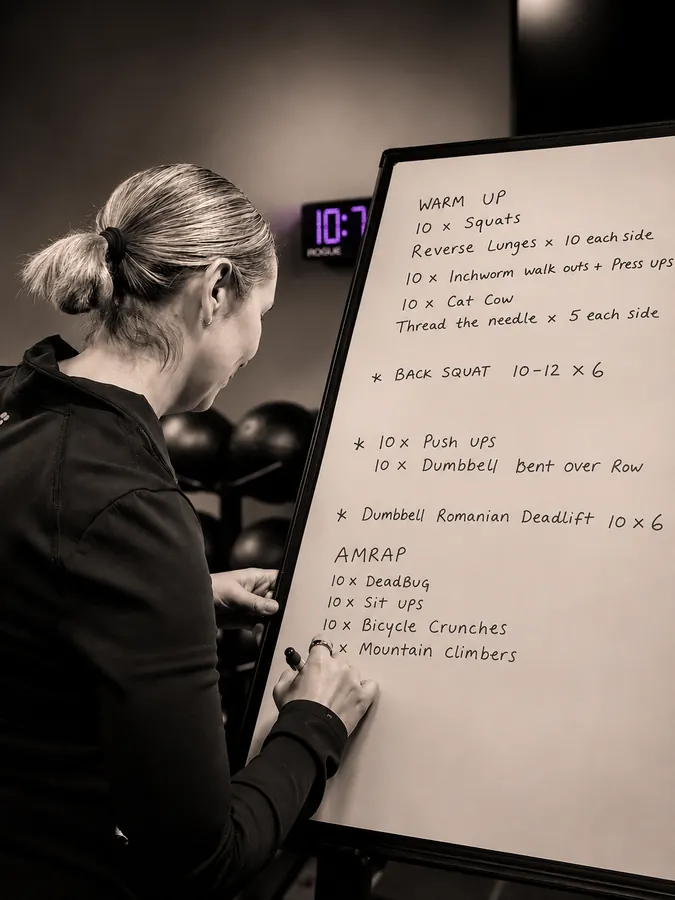 10:7
ROGUE
WARM UP
10 x Squats
Reverse Lunges x 10 each side
10 x Inchworm walk outs + Press ups
10 x Cat Cow
Thread the needle x 5 each side
* BACK SQUAT 10-12 x 6
* 10 x Push ups
10 x Dumbbell Bent over Row
* Dumbbell Romanian Deadlift 10 x 6
AMRAP
10 x DeadBug
10 x Sit ups
10 x Bicycle Crunches
x Mountain Climbers